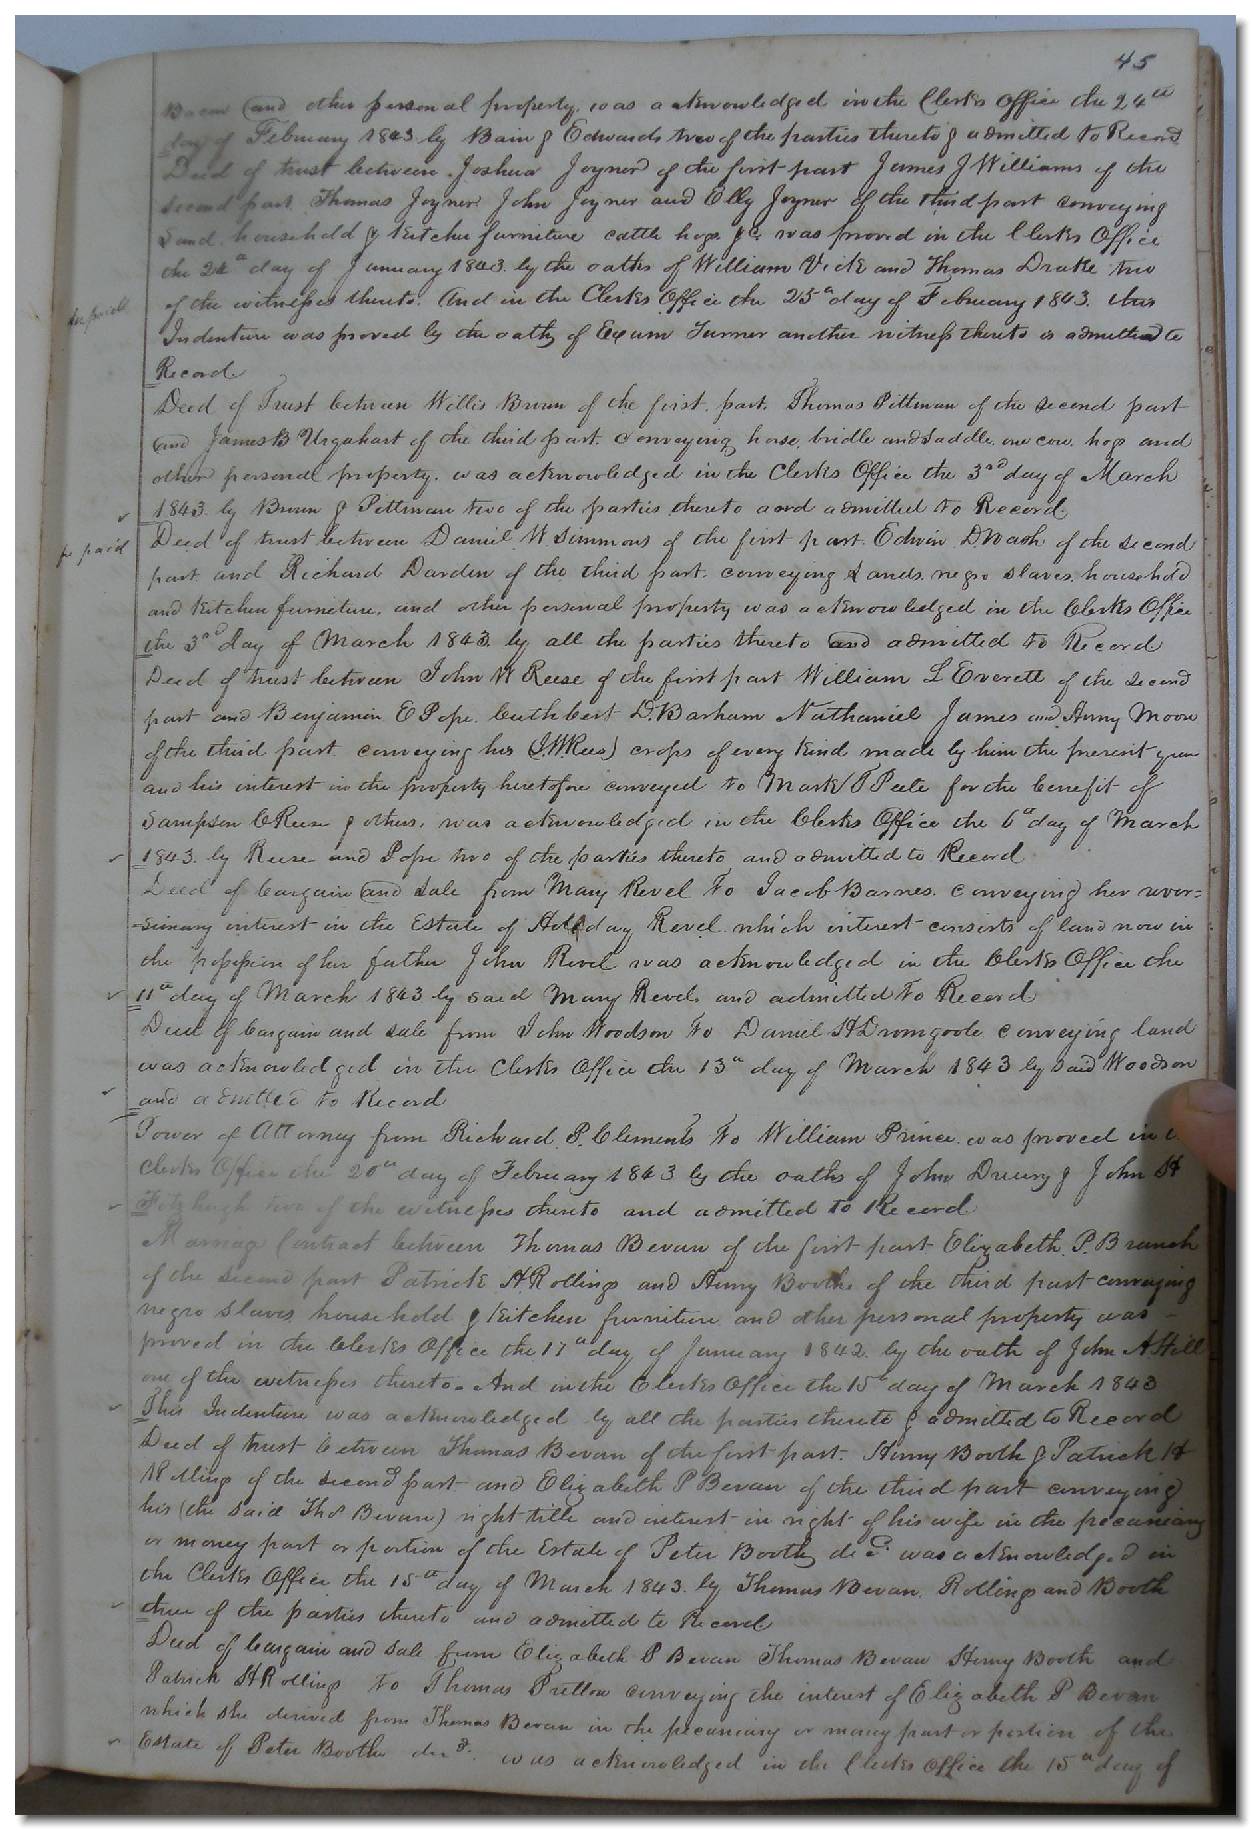 45
Bacon and other personal property, was acknowledged in the Clerks Office the 24th
day of February 1843 by Bain & Edwards two of the parties thereto & admitted to Record
Deed of trust between Joshua Joyner of the first part James J Williams of the
second part Thomas Joyner John Joyner and Olly Joyner of the third part conveying
Land, household & Kitchen furniture cattle hogs &c was proved in the Clerks Office
the 24th day of January 1843 by the oaths of William Vick and Thomas Drake two
of the witnesses thereto. And in the Clerks Office the 25th day of February 1843. this
Indenture was proved by the oath of Exum Turner another witness thereto & admitted to
Record
Deed of Trust between Willis Brown of the first part, Thomas Pittman of the second part
and James B Urquhart of the third part conveying horse, bridle and Saddle, one cow, hogs and
other personal property, was acknowledged in the Clerks Office the 3rd day of March
1843 by Brown & Pittman two of the parties thereto and admitted to Record
paid
Deed of trust between Daniel W Simmons of the first part Edwin D. Wash of the second
part and Richard Darden of the third part. conveying Lands, negro slaves, household
and Kitchen furniture, and other personal property was acknowledged in the Clerks Office
the 3rd day of March 1843 by all the parties thereto and admitted to Record
Deed of trust between John W Reese of the first part William L Everett of the second
part and Benjamin E Pope. Cuthbert D. Barham Nathaniel James and Moore
of the third part conveying his (J.W. Rees) crops of every Kind made by him the present year
and his interest in the property heretofore conveyed to Mark T Peete for the benefit of
Sampson C Reese & others, was acknowledged in the Clerks Office the 6th day of March
1843 by Reese and Pope two of the parties thereto and admitted to Record
Deed of bargain and sale from Mary Revel to Jacob Barnes. conveying her rever=
-sionary interest in the Estate of Holladay Revel which interest consists of land now in
the possession of her father John Revel was acknowledged in the Clerks Office the
11th day of March 1843 by said Mary Revel, and admitted to Record
Deed of bargain and sale from John Woodson to Daniel H Dromgoole conveying land
was acknowledged in the Clerks Office the 13th day of March 1843 by said Woodson
and admitted to Record
Power of Attorney from Richard P. Clements to William Prince was proved in
Clerks Office the 20th day of February 1843 by the oaths of John Drewry & John H
Fitzhugh two of the witnesses thereto and admitted to Record
Marriage Contract between Thomas Bevan of the first part Elizabeth P. Branch
of the second part Patrick H Rollings and Henry Booth of the third part conveying
negro Slaves, household & Kitchen furniture and other personal property was
proved in the Clerks Office the 17th day of January 1842 by the oath of John A Hill
one of the witnesses thereto. And in the Clerks Office the 15th day of March 1843
This Indenture was acknowledged by all the parties thereto & admitted to Record
Deed of trust between Thomas Bevan of the first part. Henry Booth & Patrick H
Rollings of the second part and Elizabeth P Bevan of the third part conveying
his (the said Thos Bevan) right title and interest in right of his wife in the pecuniary
or money part or portion of the Estate of Peter Booth decd was acknowledged in
the Clerks Office the 15th day of March 1843. by Thomas Bevan, Rollings and Booth
three of the parties thereto and admitted to Record
Deed of bargain and sale from Elizabeth P Bevan Thomas Bevan Henry Booth and
Patrick H Rollings to Thomas Pretlow conveying the interest of Elizabeth P Bevan
which she derived from Thomas Bevan in the pecuniary or money part or portion of the
Estate of Peter Boothe decd. was acknowledged in the Clerks Office the 15th day of